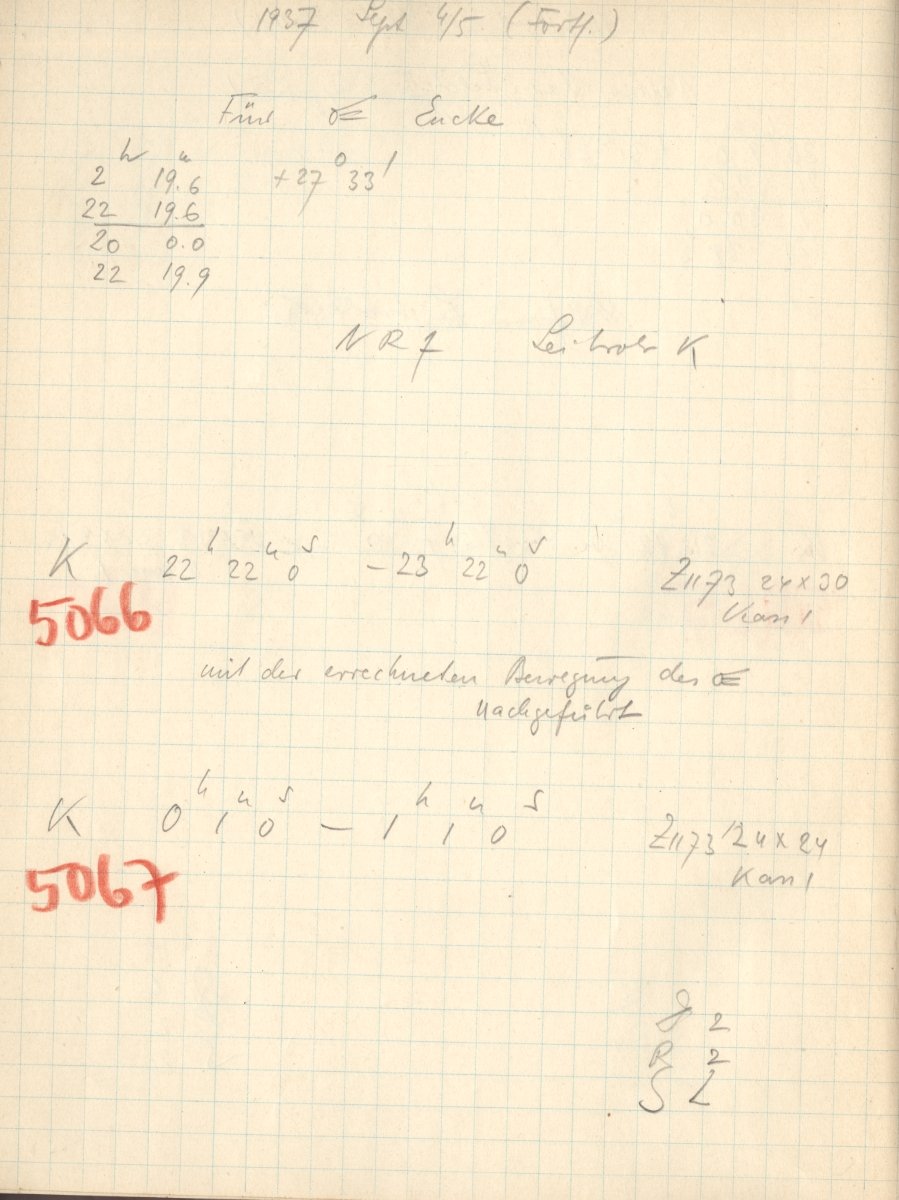 1937 Sept 4/5. (Forts.)
Für ☄ Encke
2h 19.6m +27° 33'
22 19.6
20 0.0
22 19.9
NR 7 Leitrohr K
K 22h 22m 0s – 23h 22m 0s Z1173 24x30
5066 Kass 1
mit der errechneten Bewegung des ☄
nachgeführt
K 0h 1m 0s – 1h 1m 0s Z1173 24x24
5067 Kass 1
2
R 2
S 2